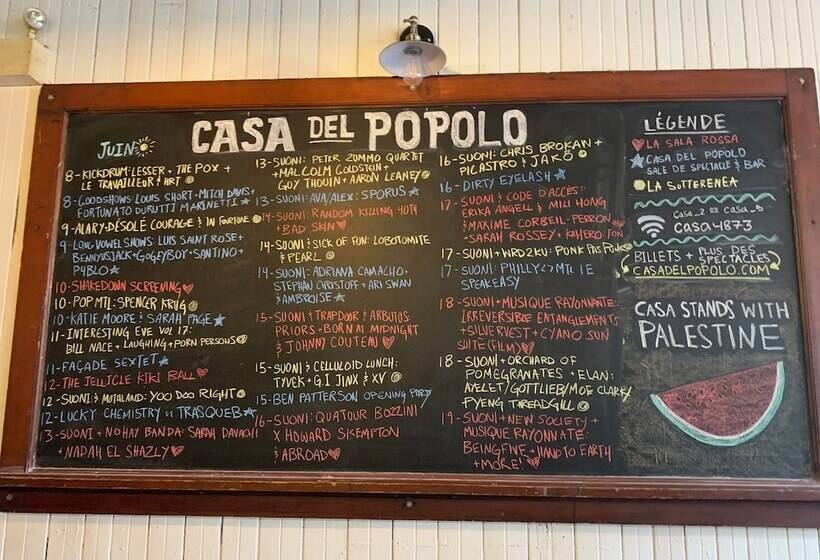 CASA DEL POPOLO
JUIN
8-KICKDRUM: LESSER + THE POX +
LE TRAVAILLEUR + HRT
8-GOODSHOWS: LOUIS SHORT + MITCH DAVIS +
FORTUNATO DURUTTI MARINETTI
9-ALARY + DÉSOLÉ COURAGE & IN FORTUNE
9-LONG VOWEL SHOWS: LUIS SAINT ROSE +
BENNYUSJACK + GOGEYBOY + SANTINO +
P4BLO
10-SHAKEDOWN SCREENING
10-POP MTL: SPENCER KRUG
10-KATIE MOORE & SARAH PAGE
11-INTERESTING EVE VOL 17:
BILL NACE + LAUGHING + PORN PERSONS
11-FAÇADE SEXTET
12-THE JELLICLE KIKI BALL
12-SUONI & MUTALAND: YOO DOO RIGHT
12-LUCKY CHEMISTRY :: TRASQUEB
13-SUONI + NO HAY BANDA: SARAH DAVACHI
+ NADAH EL SHAZLY
13-SUONI: PETER ZUMMO QUARTET
+ MALCOLM GOLDSTEIN +
GUY THOUIN + AARON LEANEY
13-SUONI: AVA/ALEX: SPORUS
14-SUONI: RANDOM KILLING 40TH
+ BAD SKIN
14-SUONI & SICK OF FUN: LOBOTOMITE
& PEARL
14-SUONI: ADRIANA CAMACHO,
STEPHAN CHRISTOFF + ARI SWAN
& AMBROISE
15-SUONI & TRAPDOOR & ARBUTUS:
PRIORS + BORN AT MIDNIGHT
& JOHNNY COUTEAU
15-SUONI & CELLULOID LUNCH:
TYVEK + G.I JINX & XV
15-BEN PATTERSON OPENING PARTY
16-SUONI: QUATUOR BOZZINI
X HOWARD SKEMPTON
& ABROAD
16-SUONI: CHRIS BROKAN +
PICASTRO & JAKÓ
16-DIRTY EYELASH
17-SUONI & CODE D'ACCÈS:
ERIKA ANGELL & MILI HONG
& MAXIME CORBEIL-PERRON
+ SARAH ROSSEY + KAHERO:TON
17-SUONI + NRD2KU: PONK PAS PONK
17-SUONI: PHILLY <> MTL IE
SPEAKEASY
18-SUONI + MUSIQUE RAYONNANTE:
IRREVERSIBLE ENTANGLEMENTS
+ SILVERVEST + CYANO SUN
SUITE (FILM)
18-SUONI + ORCHARD OF
POMEGRANATES + ELAN:
AYELET/GOTTLIEB/MOE CLARK/
PYENG THREADGILL
19-SUONI + NEW SOCIETY +
MUSIQUE RAYONNATE:
BEINGFINE + HAND TO EARTH
+ MORE!
LÉGENDE
LA SALA ROSSA
CASA DEL POPOLO
SALE DE SPECTACLE & BAR
LA SOTTERENEA
CASA_2 OR CASA_5
CASA4873
BILLETS + PLUS DES
SPECTACLES
CASADELPOPOLO.COM
CASA STANDS WITH
PALESTINE